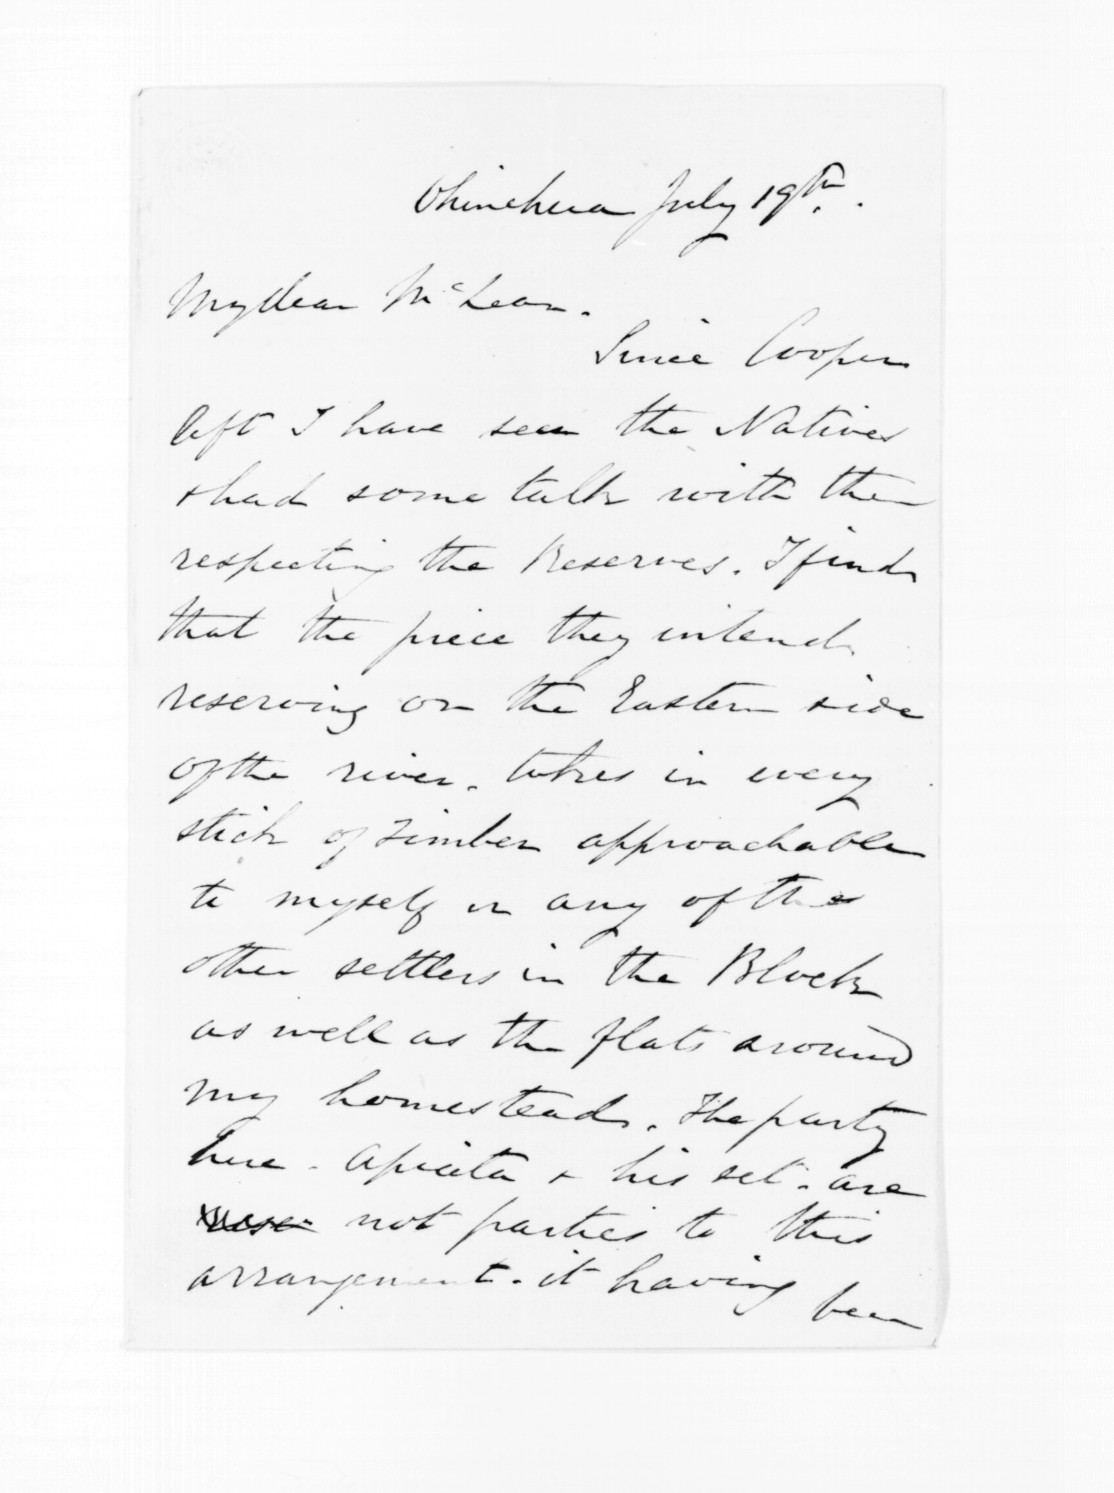 July 19th.
My dear McLean.
Since Cooper
left I have seen the Natives
& had some talk with them
respecting the Reserves. I find
that the piece they intend
reserving on the Eastern side
of the river. takes in every
stick of Timber approachable
to myself or any of the
other settlers in the Block
as well as the flats around
my homestead. The party
here. & his set. are
not parties to this
arrangement. it having been